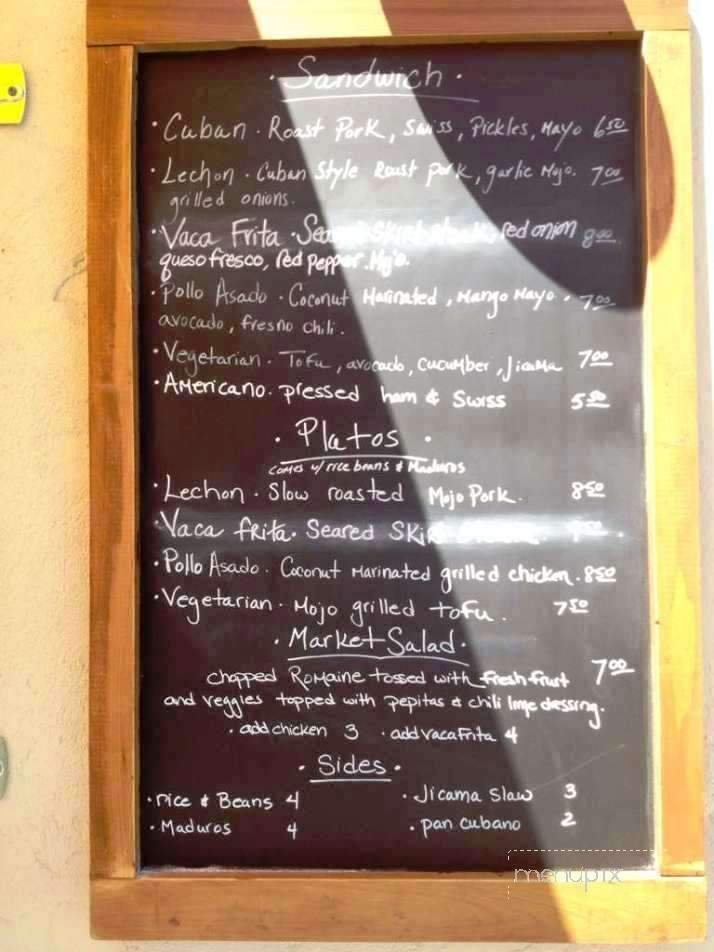 · Sandwich ·
· Cuban · Roast Pork, Swiss, Pickles, Mayo 6.50
· Lechon · Cuban Style Roast pork, garlic Mojo. 7.00
grilled onions.
· Vaca Frita · Seared Skirt steak, red onion 8.00
queso fresco, red pepper. Mojo.
· Pollo Asado · Coconut Marinated, Mango Mayo · 7.00
avocado, fresno chili.
· Vegetarian · Tofu, avocado, cucumber, Jicama 7.00
· Americano. pressed ham & Swiss 5.50
· Platos ·
comes w/ rice beans & Maduros
· Lechon · Slow roasted Mojo Pork. 8.50
· Vaca frita · Seared Skirt
· Pollo Asado · Coconut Marinated grilled chicken. 8.50
· Vegetarian · Mojo grilled tofu. 7.50
· Market Salad ·
chopped Romaine tossed with fresh fruit 7.00
and veggies topped with pepitas & chili lime dressing.
· add chicken 3 · add Vaca Frita 4
· Sides ·
· rice & Beans 4 · Jicama Slaw 3
· Maduros 4 · pan cubano 2
menupix